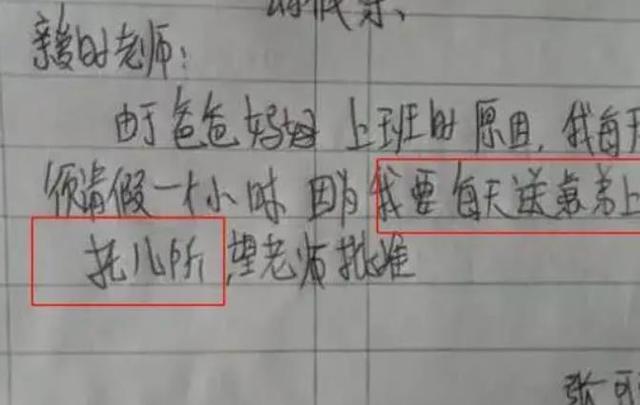 亲爱的老师:
由于爸爸妈妈 上班的 原因,我每天
须请假一个小时 因为我要每天送弟弟上
托儿所,望老师批准
张